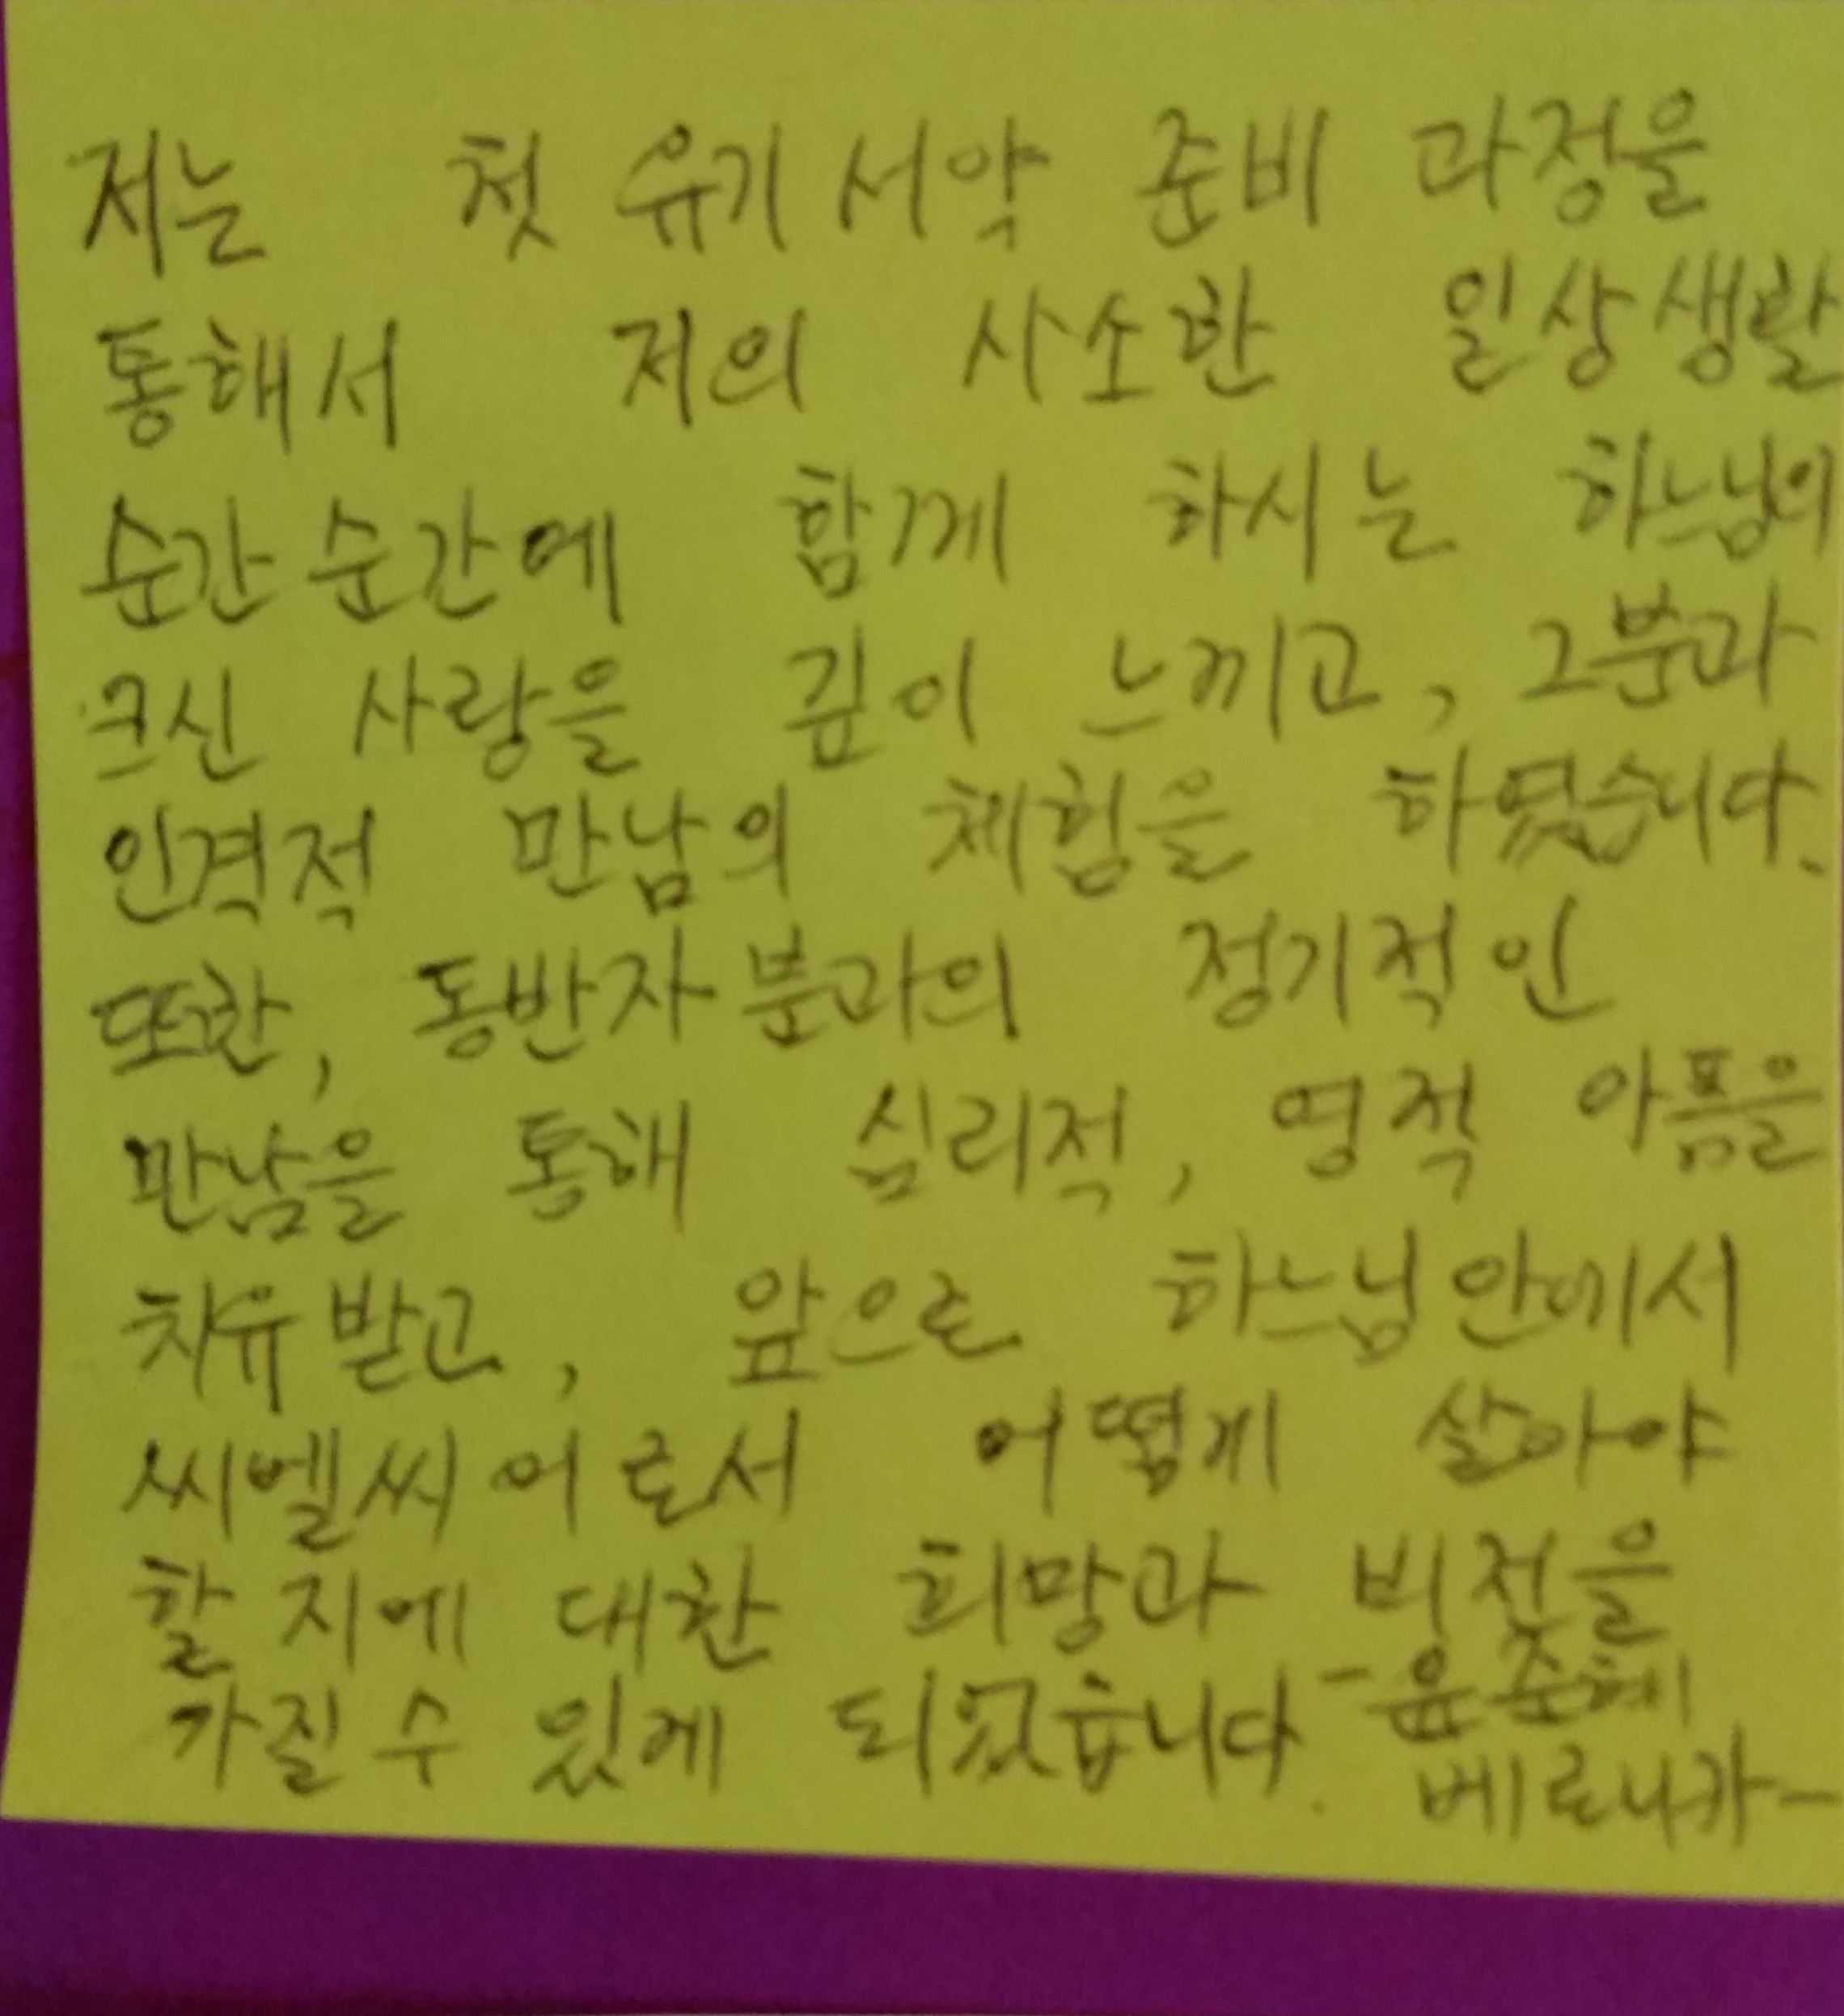 저는 첫 유기서약 준비 과정을
통해서 저의 사소한 일상생활
순간순간에 함께 하시는 하느님의
크신 사랑을 깊이 느끼고, 그분과
인격적 만남의 체험을 하였습니다.
또한, 동반자분과의 정기적인
만남을 통해 심리적, 영적 아픔을
치유받고, 앞으로 하느님안에서
씨엘씨어로서 어떻게 살아야
할 지에 대한 희망과 비젼을
가질 수 있게 되었습니다. -윤준혜
베로니카-